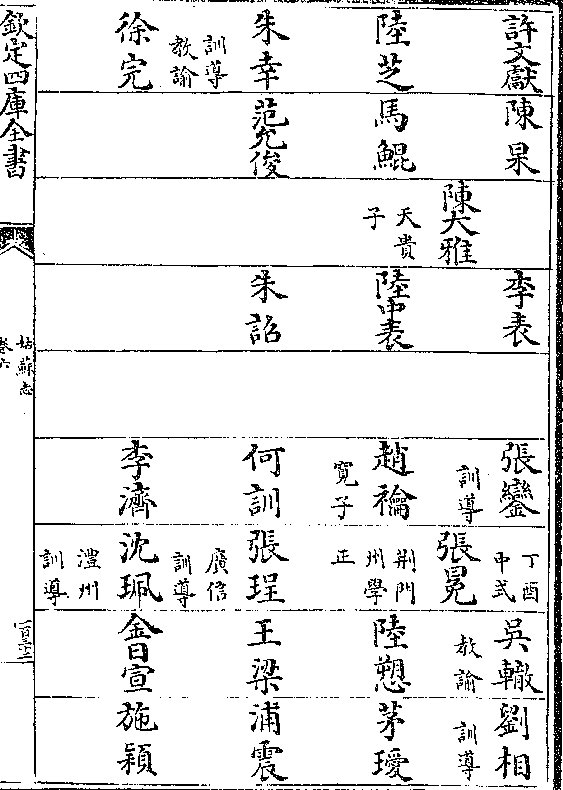 許文獻
陸芝
朱幸
訓導
教諭
徐完
陳杲
馬鯤
范允俊
陳大雅
天貴
子
李表
陸中表
朱詔
張鑾
訓導
趙禬
寛子
何訓
李濟
丁酉
中式
張冕
荆門
州學
正
張珵
廣信
訓導
沈珮
澧州
訓導
吳轍
教諭
陸愬
王梁
金日宣
劉相
訓導
茅瑷
浦震
施穎
欽定四庫全書
姑蘇志
卷六